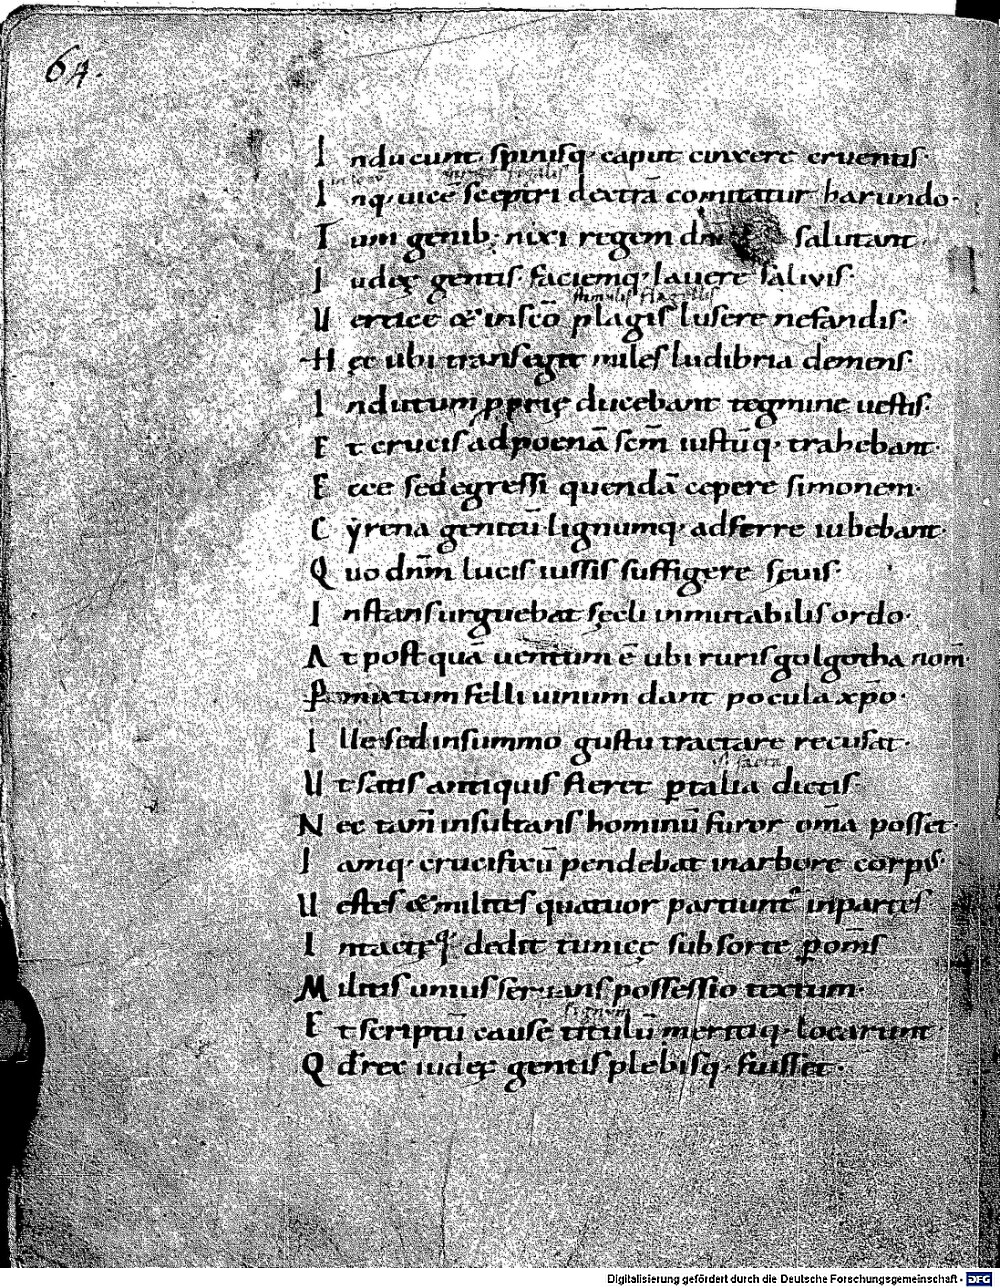 64.
Inducunt. spinisq· caput cinxere cruentis·
Inq· uicē sceptri dextrā comitatur harundo·
Tum genib; nixi regem salutant·
Iudęę gentis· faciemq· lauere saliuis·
stimulis flagellis
Uertice & inscō plagis lusere nefandis·
Hęc ubi transegit miles ludibria demens·
Indutum pprię ducebant tegmine uestis·
Et crucis ad poenā scm̄ iustūq· trahebant·
Ecce sed egressi quendā cepere simonem·
Cyrena genitū lignumq· adferre iubebant·
Quo dnm̄ lucis iussis suffigere sęuis·
Instans urguebat sęcli inmutabilis ordo·
At post quā uentum ē ubi ruris golgotha nom̄·
Pmixtum felli uinum dant pocula xp̄o·
Ille sed in summo gustu tractare recusat·
facta
Ut satis antiquis fieret ptalia dictis·
Nec tam̄ insultans hominū furor om̄a posset·
Iamq· crucifixū pendebat in arbore corpus·
Uestes & milites quatuor partiunt in partes
Intactę q· dedit tunicę sub sorte pom̄s
Militis unius seruans possessio textum·
signum
Et scriptū cause titulū meritiq· locarunt·
Qd rex iudęę gentis plebisq· fuisset·
Digitalisierung gefördert durch die Deutsche Forschungsgemeinschaft - DFG